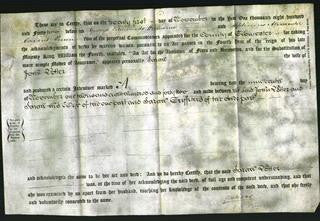 These are to Certify, that on the twenty first day of November in the Year One thousand eight hundred and
forty four before
two of the perpetual Commissioners appointed for the County of Gloucester for taking
the acknowledgments of deeds by married women, pursuant to an Act passed in the Fourth Year of the reign of his late
Majesty King William the Fourth, intituled, "An Act for the Abolition of Fines and Recoveries, and for the Substitution of
more simple Modes of Assurance," appeared personally Sarah
and produced a certain Indenture marked A bearing date the nineteenth day
of November one thousand eight hundred and forty four and made between the said John and
Sarah his Wife of the one part and of the other part
and acknowledged the same to be her act and deed: And we do hereby Certify, that the said Sarah
was, at the time of her acknowledging the said deed, of full age and competent understanding, and that
she was examined by us apart from her husband, touching her knowledge of the contents of the said deed, and that she freely
and voluntarily consented to the same.